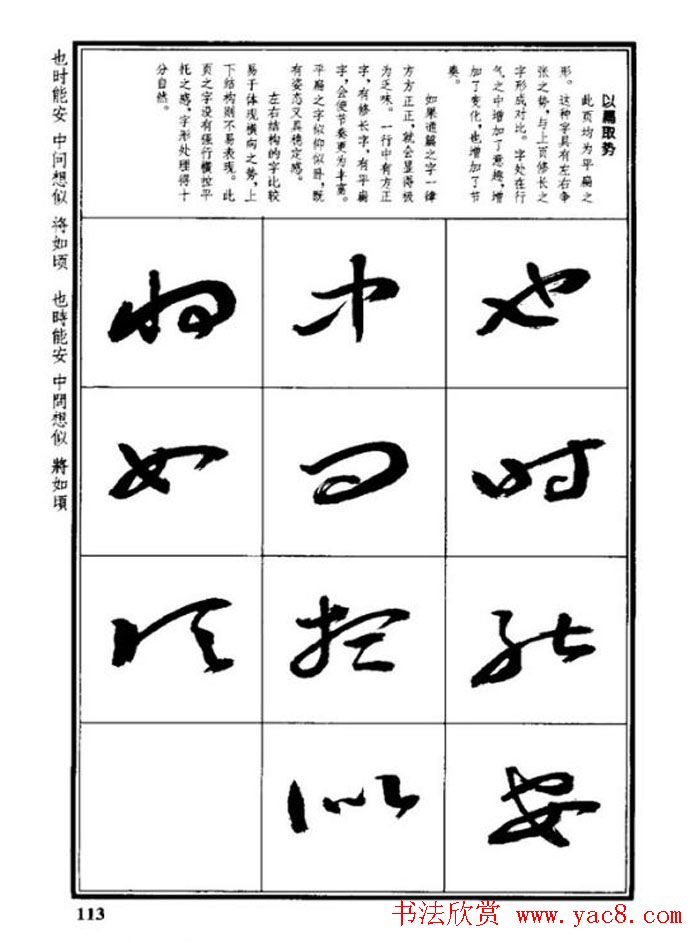 以扁取势
此页均为平扁之
形。这种字具有左右争
张之势,与上页修长之
字形成对比。字处在行
气之中增加了意趣,增
加了变化,也增加了节
奏。
如果通篇之字一律
方方正正,就会显得极
为乏味。一行中有方正
字,有修长字,有平扁
字,会使节奏更为丰富。
平扁之字似仰似卧,既
有姿态又具稳定感。
左右结构的字比较
易于体现横向之势,上
下结构则不易表现。此
页之字没有强行横拉平
托之感,字形处理得十
分自然。
也时能安
中问想似
将如顷
也时能安 中问想似 将如顷 也時能安 中問想似 將如頃
113
书法欣赏 www.yac8.com